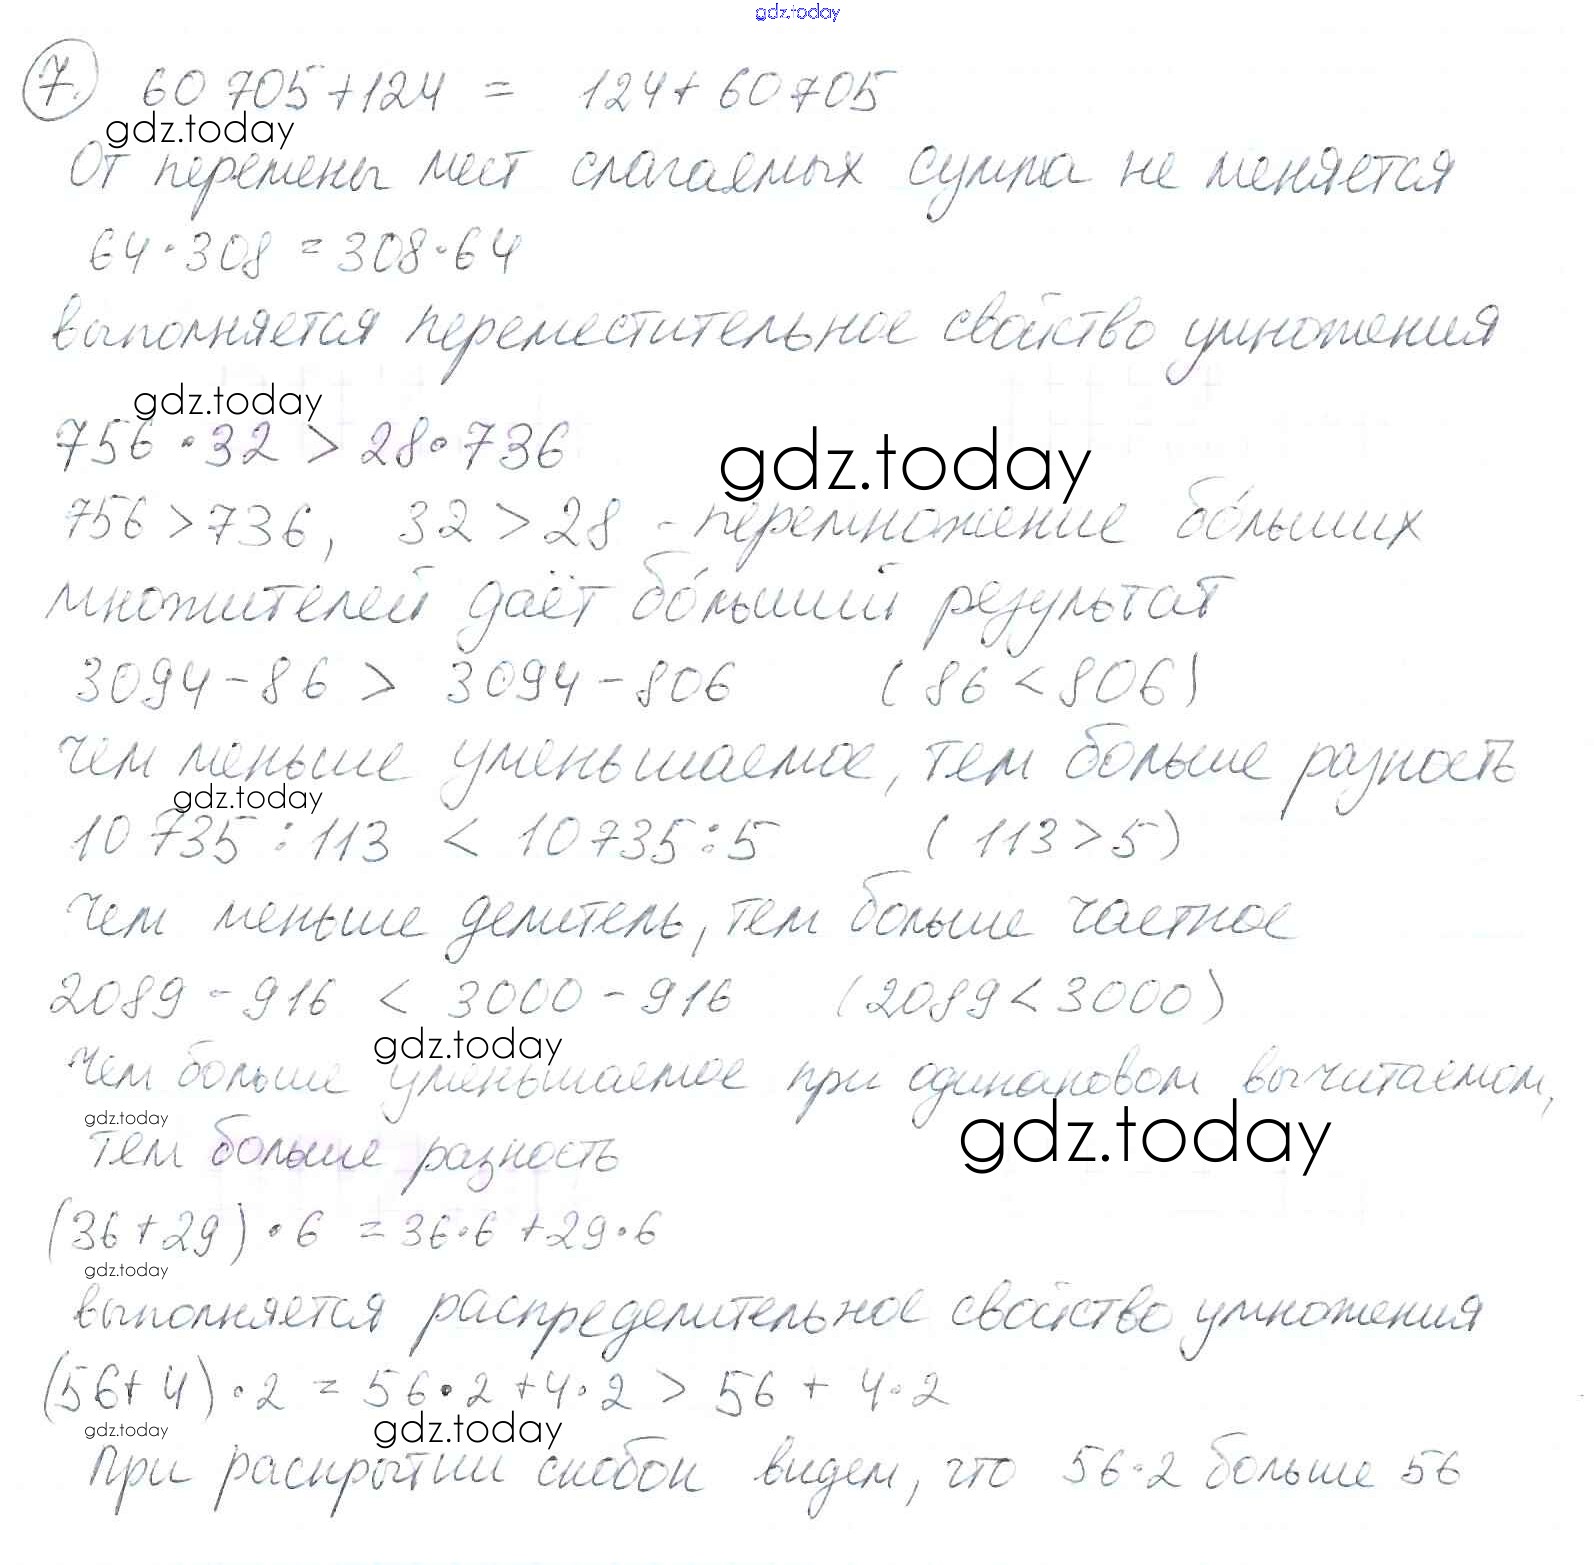 gdz.today
7. 60 705 + 124 = 124 + 60 705
gdz.today
От перемены мест слагаемых сумма не меняется
64 · 308 = 308 · 64
выполняется переместительное свойство умножения
gdz.today
756 · 32 > 28 · 736
gdz.today
756 > 736, 32 > 28 - перемножение бо́льших
множителей даёт бо́льший результат
3094 - 86 > 3094 - 806 (86 < 806)
чем меньше уменьшаемое, тем больше разность
gdz.today
10 735 : 113 < 10 735 : 5 (113 > 5)
Чем меньше делитель, тем больше частное
2089 - 916 < 3000 - 916 (2089 < 3000)
gdz.today
Чем больше уменьшаемое при одинаковом вычитаемом,
gdz.today
gdz.today
тем больше разность
(36 + 29) · 6 = 36 · 6 + 29 · 6
gdz.today
выполняется распределительное свойство умножения
(56 + 4) · 2 = 56 · 2 + 4 · 2 > 56 + 4 · 2
gdz.today
gdz.today
При раскрытии скобок видем, что 56 · 2 больше 56